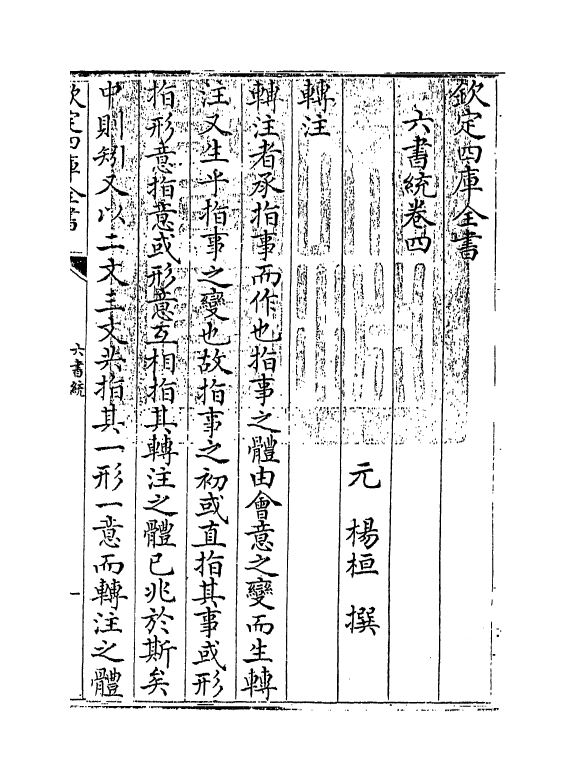 欽定四庫全書
六書統卷四
元 楊桓 撰
轉注
轉注者承指事而作也指事之體由會意之變而生轉
注又生乎指事之變也故指事之初或直指其事或形
指形意指意或形意互相指其轉注之體已兆於斯矣
中則紛又以二文三文共指其一形一意而轉注之體
欽定四庫全書
六書統
一